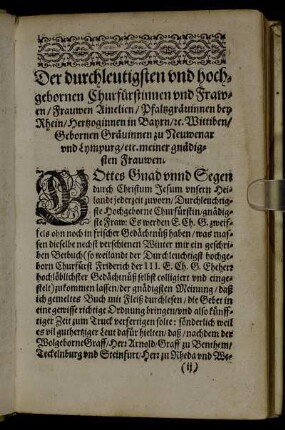 Der durchleutigsten vnd hoch-
gebornen Churfürstinnen vnd Fraw-
en / Frauwen Amelien / Pfaltzgräuinnen bey
Rhein / Hertzoginnen in Bayrn / ꝛc. Wittiben /
Gebornen Gräuinnen zu Neuwenar
vnd Lympurg / etc. meiner gnädig-
sten Frauwen.
GOttes Gnad vnnd Segen
durch Christum Jesum vnsern Hei-
lande jederzeit zuvorn / Durchleuchtig-
ste Hochgeborne Churfürstin / gnädig-
ste Fraw: Es werden E. Ch. G. zweif-
fels ohn noch in frischer Gedächnüß haben / was mas-
sen dieselbe nechst verschienen Winter mir ein geschri-
ben Betbuch (so weilandt der Durchleuchtigst hochge-
born Churfürst Friderich der III. E. Ch. G. Eheherr
hochlöblichster Gedächnüß selbst colligiert vnd einge-
stelt) zukommen lassen / der gnädigsten Meinung / daß
ich gemeltes Buch mit Fleiß durchlesen / die Gebet in
eine gewisse richtige Ordnung bringen / vnd also künff-
tiger Zeit zum Truck verfertigen solte: sönderlich weil
es vil guthertziger Leut dafür hielten / daß / nachdem der
Wolgeborne Graff / Herr Arnold / Graff zu Benthem /
Tecklnburg vnd Steinfurt / Herr zu Rheda vnd We-
(ij)